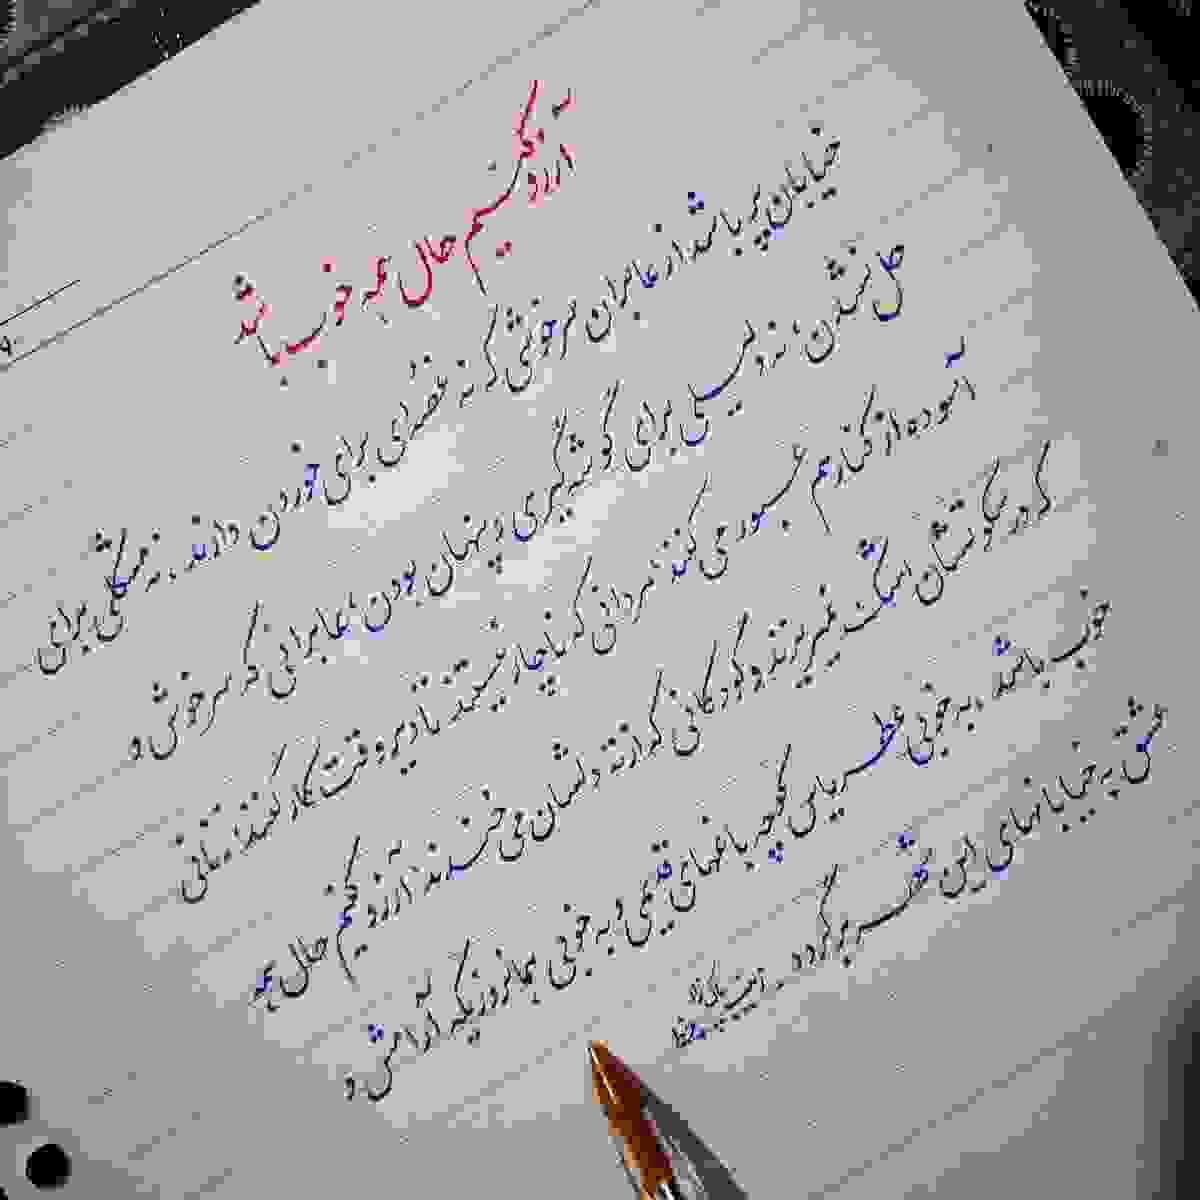 آرزو کنیم حال همه خوب باشد
خیابان پر باشد از عابران سرخوشی که نه غصه‌ای برای خوردن دارند، نه مشکلی برای
حل نشدن، نه دلیلی برای گوشه‌گیری و پنهان بودن، عابرانی که سرخوش و
آسوده از کنار هم عبور می‌کنند، مردانی که ناچار نیستند تا دیروقت کار کنند، زنانی
که در سکوتشان اشک نمیریزند و کودکانی که از ته دلشان می‌خندند، آرزو کنیم حال همه
خوب باشد، به خوبی عطر یاس کوچه باغهای قدیمی و به خوبی همانروزیکه آرامش و
عشق به خیابانهای این شهر برگردد.
زینب پاک‌زاد